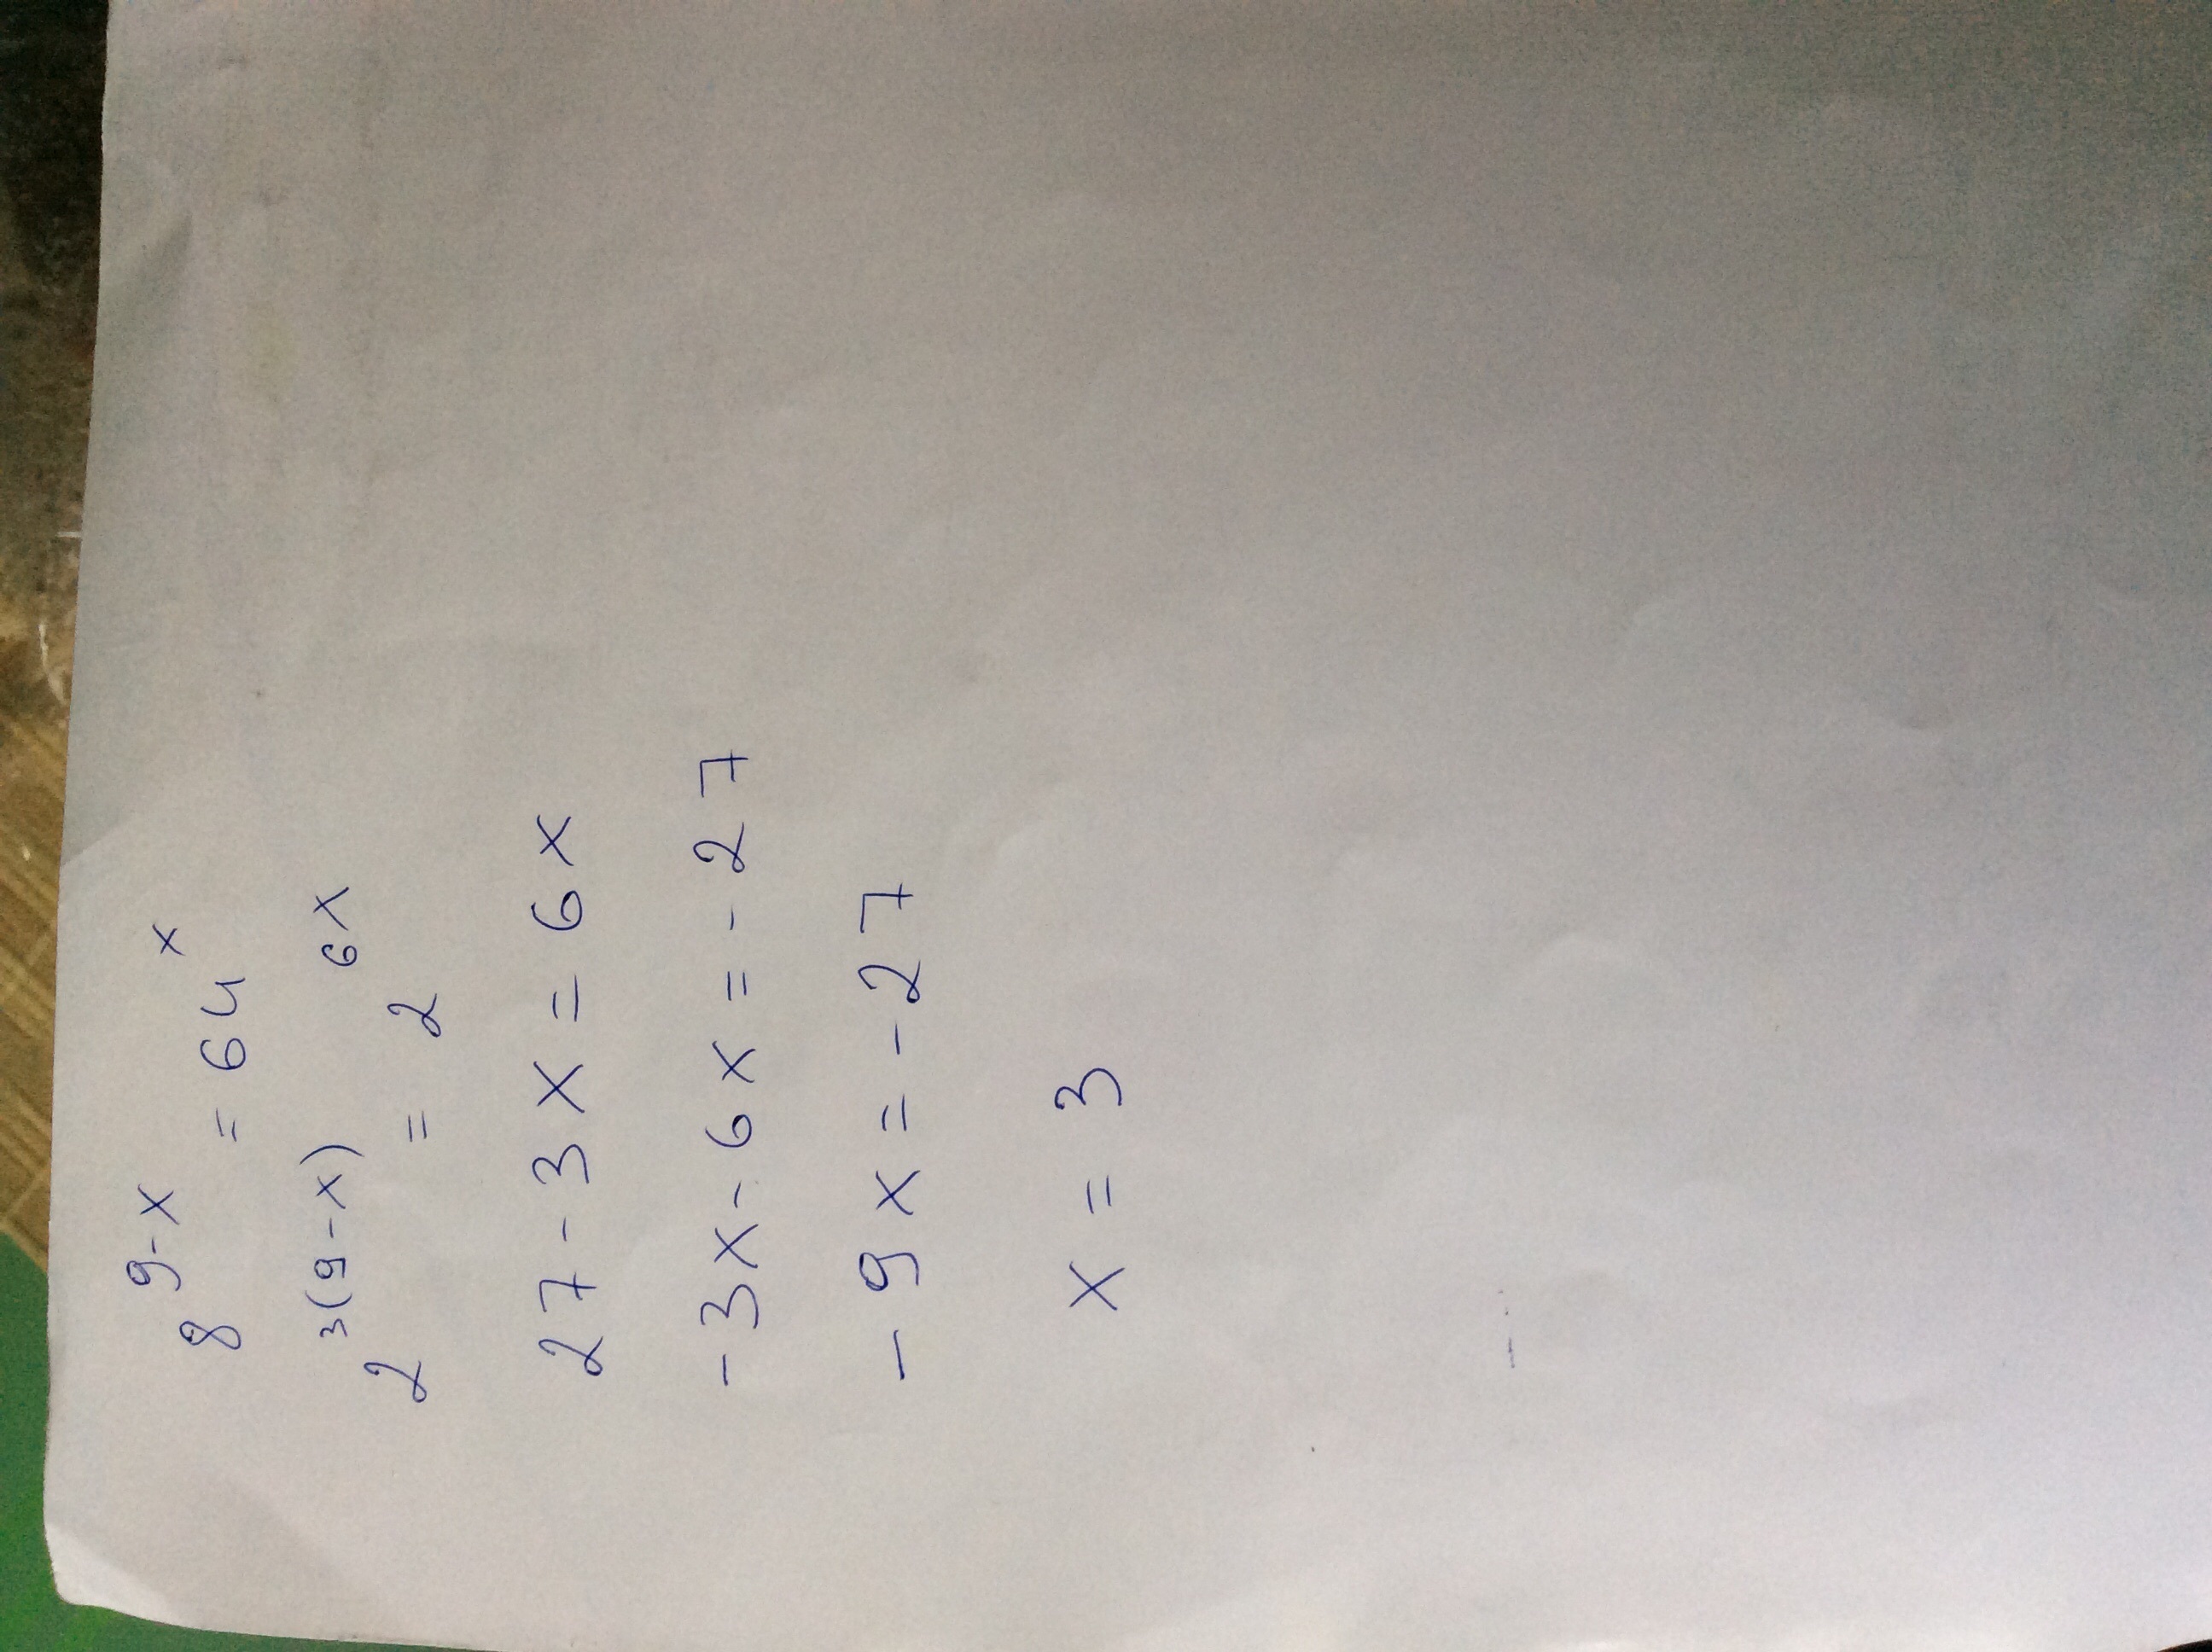 8^{9-x} = 64^x
2^{3(9-x)} = 2^{6x}
27-3x=6x
-3x-6x=-27
-9x=-27
x=3